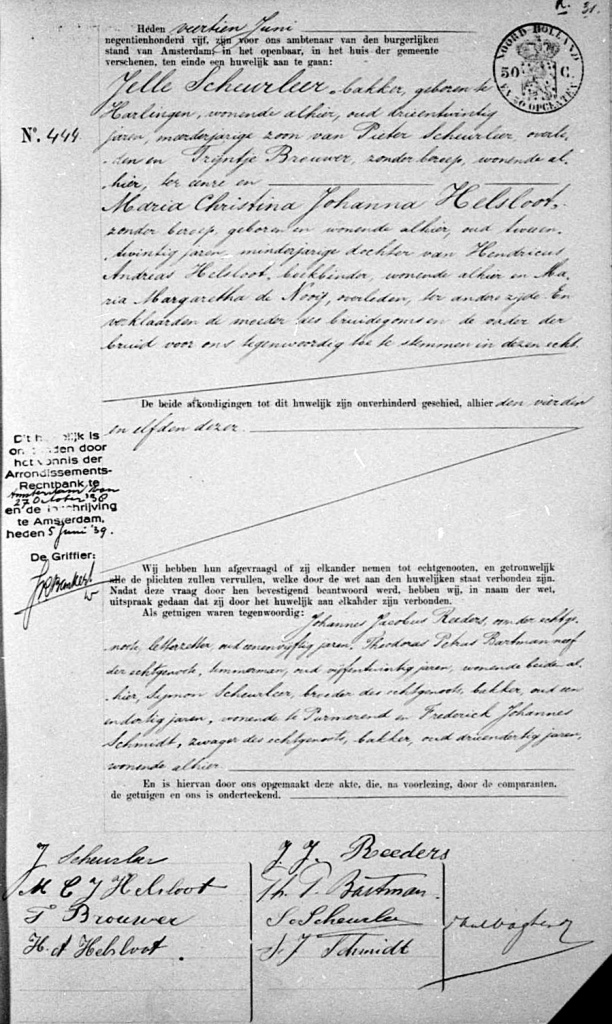 R. 31.
NOORD-HOLLAND
50 C.
EN 50 OPCENTEN
Heden veertien Juni
negentienhonderd vijf, zijn voor ons ambtenaar van den burgerlijken
stand van Amsterdam, in het openbaar, in het huis der gemeente
verschenen, ten einde een huwelijk aan te gaan:
Jelle Scheurleer, bakker, geboren te
Harlingen, wonende alhier, oud drieentwintig
jaren, meerderjarige zoon van Pieter Scheurleer, overle-
den en Trijntje Brouwer, zonder beroep, wonende al-
hier, ter eenre en
Maria Christina Johanna Helsloot,
zonder beroep, geboren en wonende alhier, oud tweeen-
twintig jaren, minderjarige dochter van Hendricus
Andreas Helsloot, boekbinder, wonende alhier en Ma-
ria Margaretha de Nooij, overleden, ter andere zijde. En
verklaarden de moeder des bruidegoms en de vader der
bruid voor ons tegenwoordig toe te stemmen in dezen echt.
No. 444.
De beide afkondigingen tot dit huwelijk zijn onverhinderd geschied, alhier den vierden
en elfden dezer
Dit h   lijk is
on   nden door
het vonnis der
Arrondissements-
Rechtbank te
Amsterdam van
27 October '38
en de inschrijving
te Amsterdam,
heden 5 Juni '39.
De Griffier:
Wij hebben hun afgevraagd of zij elkander nemen tot echtgenooten, en getrouwelijk
alle de plichten zullen vervullen, welke door de wet aan den huwelijken staat verbonden zijn.
Nadat deze vraag door hen bevestigend beantwoord werd, hebben wij, in naam der wet,
uitspraak gedaan dat zij door het huwelijk aan elkander zijn verbonden.
Als getuigen waren tegenwoordig: Johannes Jacobus Reeders, oom der echtge-
noote, letterzetter, oud eenenvijftig jaren, Theodorus Petrus Bartman neef
der echtgenoote, timmerman, oud vijfentwintig jaren, wonende beiden al-
hier, Sijmon Scheurleer, broeder des echtgenoots, bakker, oud een
endertig jaren, wonende te Purmerend en Frederick Johannes
Schmidt, zwager des echtgenoots, bakker, oud drieendertig jaren,
wonende alhier
En is hiervan door ons opgemaakt deze akte, die, na voorlezing, door de comparanten,
de getuigen en ons is onderteekend.
J Scheurleer
M C J Helsloot
T Brouwer
H. A Helsloot
J. J. Reeders
Th. P. Bartman
S. Scheurleer
F. J Schmidt